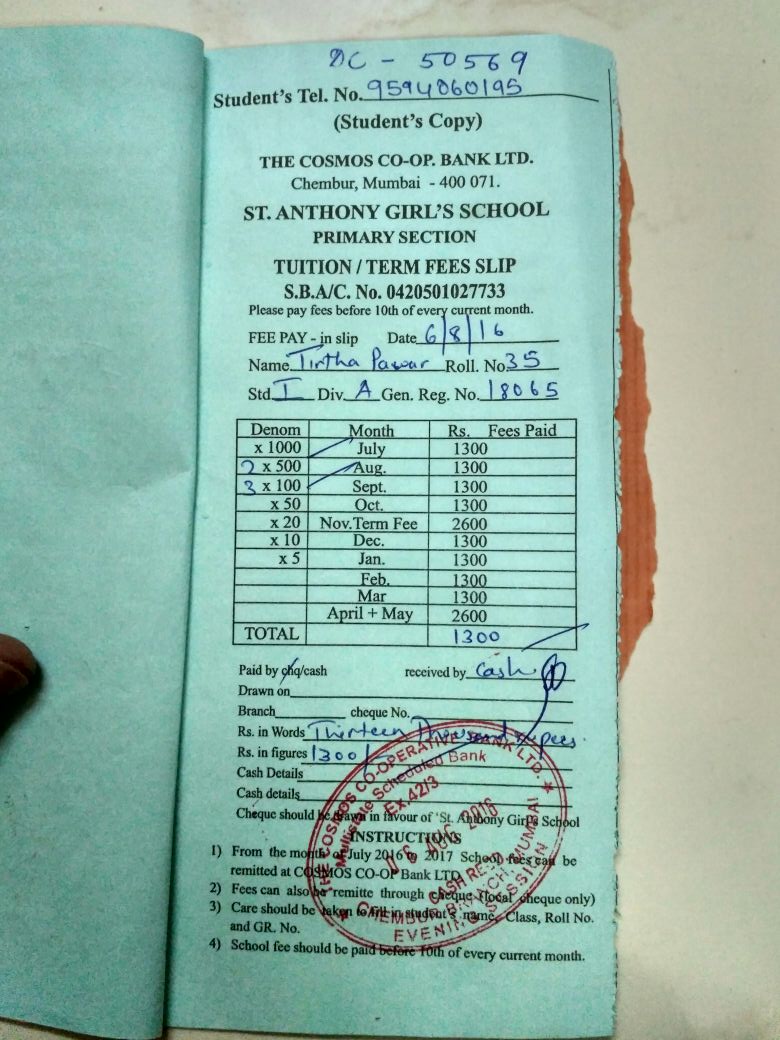 DC - 50569
Student's Tel. No. 9594060195
(Student's Copy)
THE COSMOS CO-OP. BANK LTD.
Chembur, Mumbai - 400 071.
ST. ANTHONY GIRL'S SCHOOL
PRIMARY SECTION
TUITION / TERM FEES SLIP
S.B.A/C. No. 0420501027733
Please pay fees before 10th of every current month.
FEE PAY - in slip Date 6/8/16
Name Tirtha Pawar Roll. No. 35
Std. I Div. A Gen. Reg. No. 18065
Denom Month Rs. Fees Paid
x 1000 July 1300
2 x 500 Aug. 1300
3 x 100 Sept. 1300
x 50 Oct. 1300
x 20 Nov.Term Fee 2600
x 10 Dec. 1300
x 5 Jan. 1300
Feb. 1300
Mar 1300
April + May 2600
TOTAL 1300
Paid by chq/cash received by cash
Drawn on
Branch cheque No.
Rs. in Words Thirteen Thousand rupees
Rs. in figures 1300/-
Cash Details
Cash details
Cheque should be drawn in favour of 'St. Anthony Girl's School
INSTRUCTIONS
1) From the month of July 2016 to 2017 School fees can be
remitted at COSMOS CO-OP Bank LTD.
2) Fees can also be remitte through cheque (local cheque only)
3) Care should be taken to fill in student's name, Class, Roll No.
and GR. No.
4) School fee should be paid before 10th of every current month.
THE COSMOS CO-OPERATIVE BANK LTD.
Multistate Scheduled Bank
Ex.42/3
06 AUG 2016
CASH RECD
CHEMBUR BRANCH, MUMBAI
EVENING SESSION